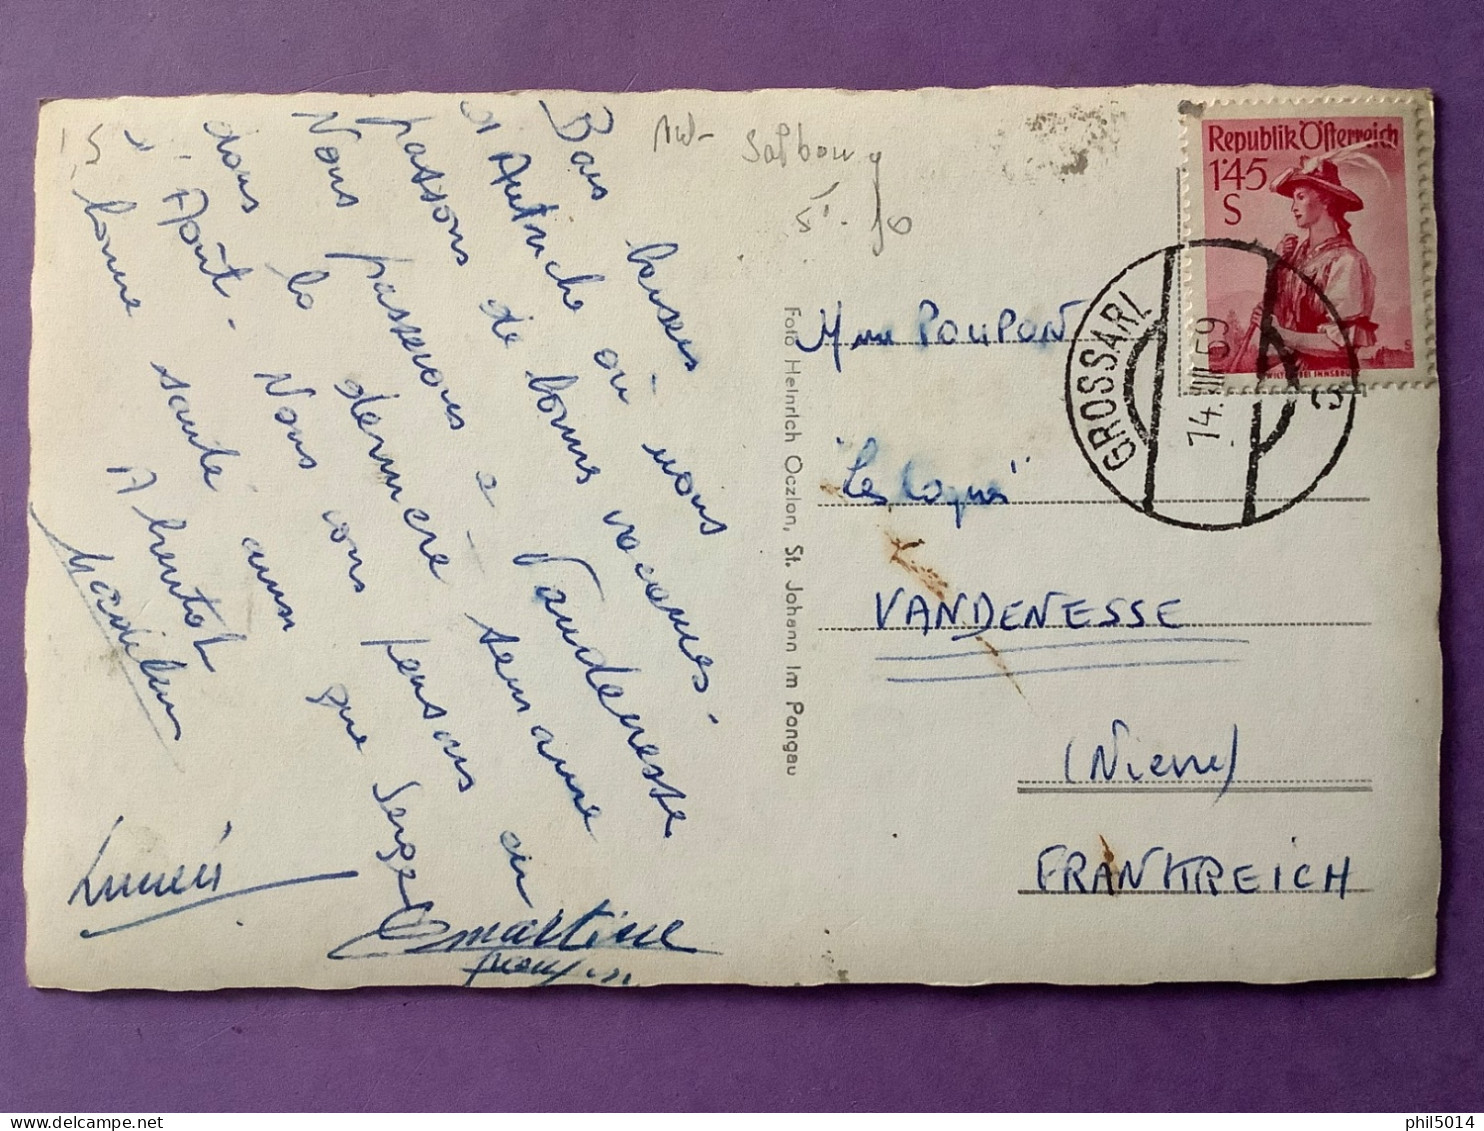 Bons baisers
d'Autriche où nous
passons de bonnes vacances.
Nous passerons à Vandenesse
dans la dernière semaine
d'Août. Nous vous pensons en
bonne santé ainsi que Serge
A bientôt
Martine
Aut-
Salzbourg
1,5
Foto Heinrich Oczlon, St. Johann im Pongau
Republik Österreich
1'45
S
GROSSARL
14.VIII.59
Mme POUPON
"Les
VANDENESSE
(Nièvre)
FRANKREICH
phil5014